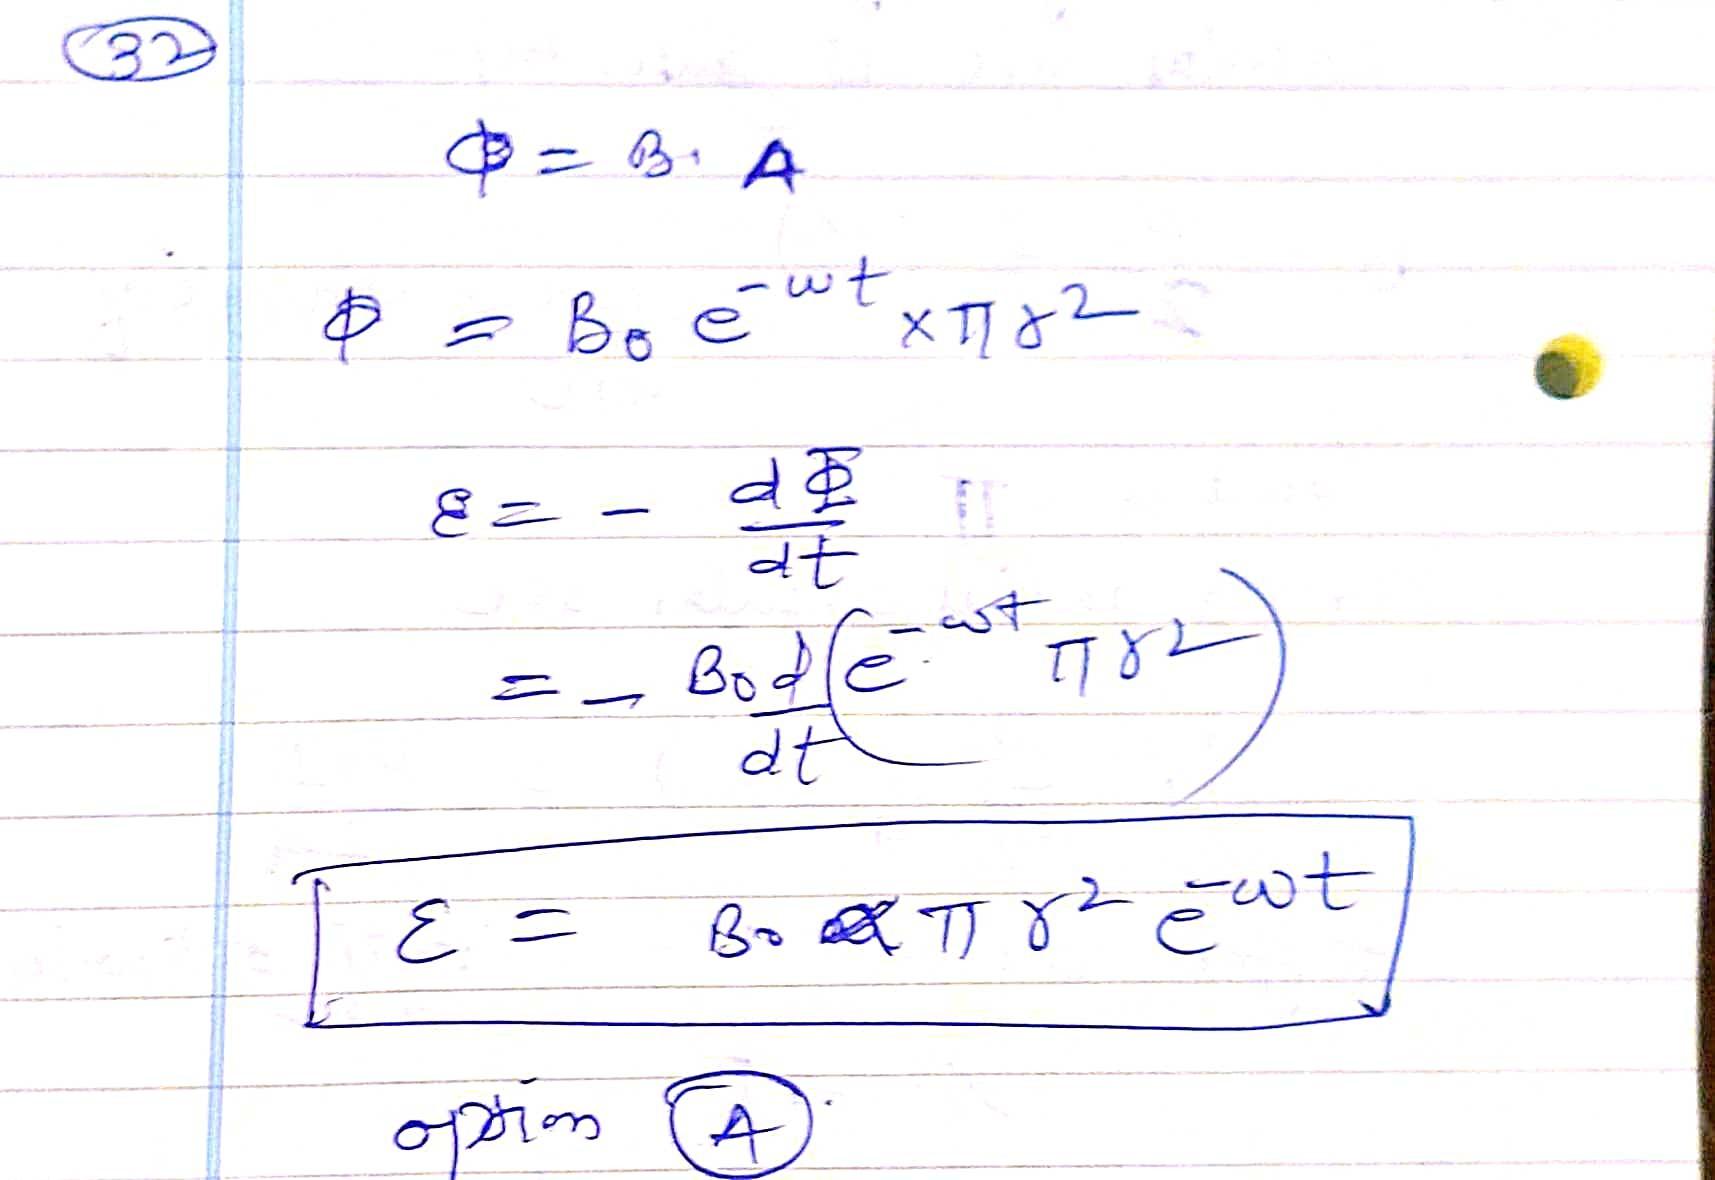 32
Φ = B. A
Φ = B₀ e^-ωt × π r²
ε = - dΦ/dt
= - B₀ d/dt (e^-ωt π r²)
ε = B₀ π r² e^-ωt
option A.